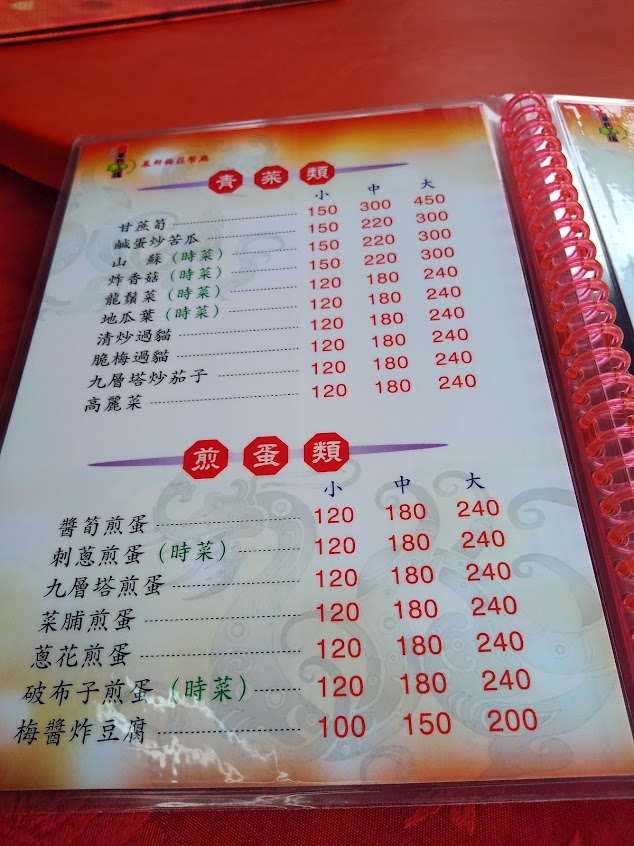 梅莊餐廳
青菜類
小 中 大
甘蔗筍 150 300 450
鹹蛋炒苦瓜 150 220 300
山 蘇(時菜) 150 220 300
炸香菇(時菜) 150 220 300
龍鬚菜(時菜) 120 180 240
地瓜葉(時菜) 120 180 240
清炒過貓 120 180 240
脆梅過貓 120 180 240
九層塔炒茄子 120 180 240
高麗菜 120 180 240
煎蛋類
小 中 大
醬筍煎蛋 120 180 240
刺蔥煎蛋(時菜) 120 180 240
九層塔煎蛋 120 180 240
菜脯煎蛋 120 180 240
蔥花煎蛋 120 180 240
破布子煎蛋(時菜) 120 180 240
梅醬炸豆腐 100 150 200